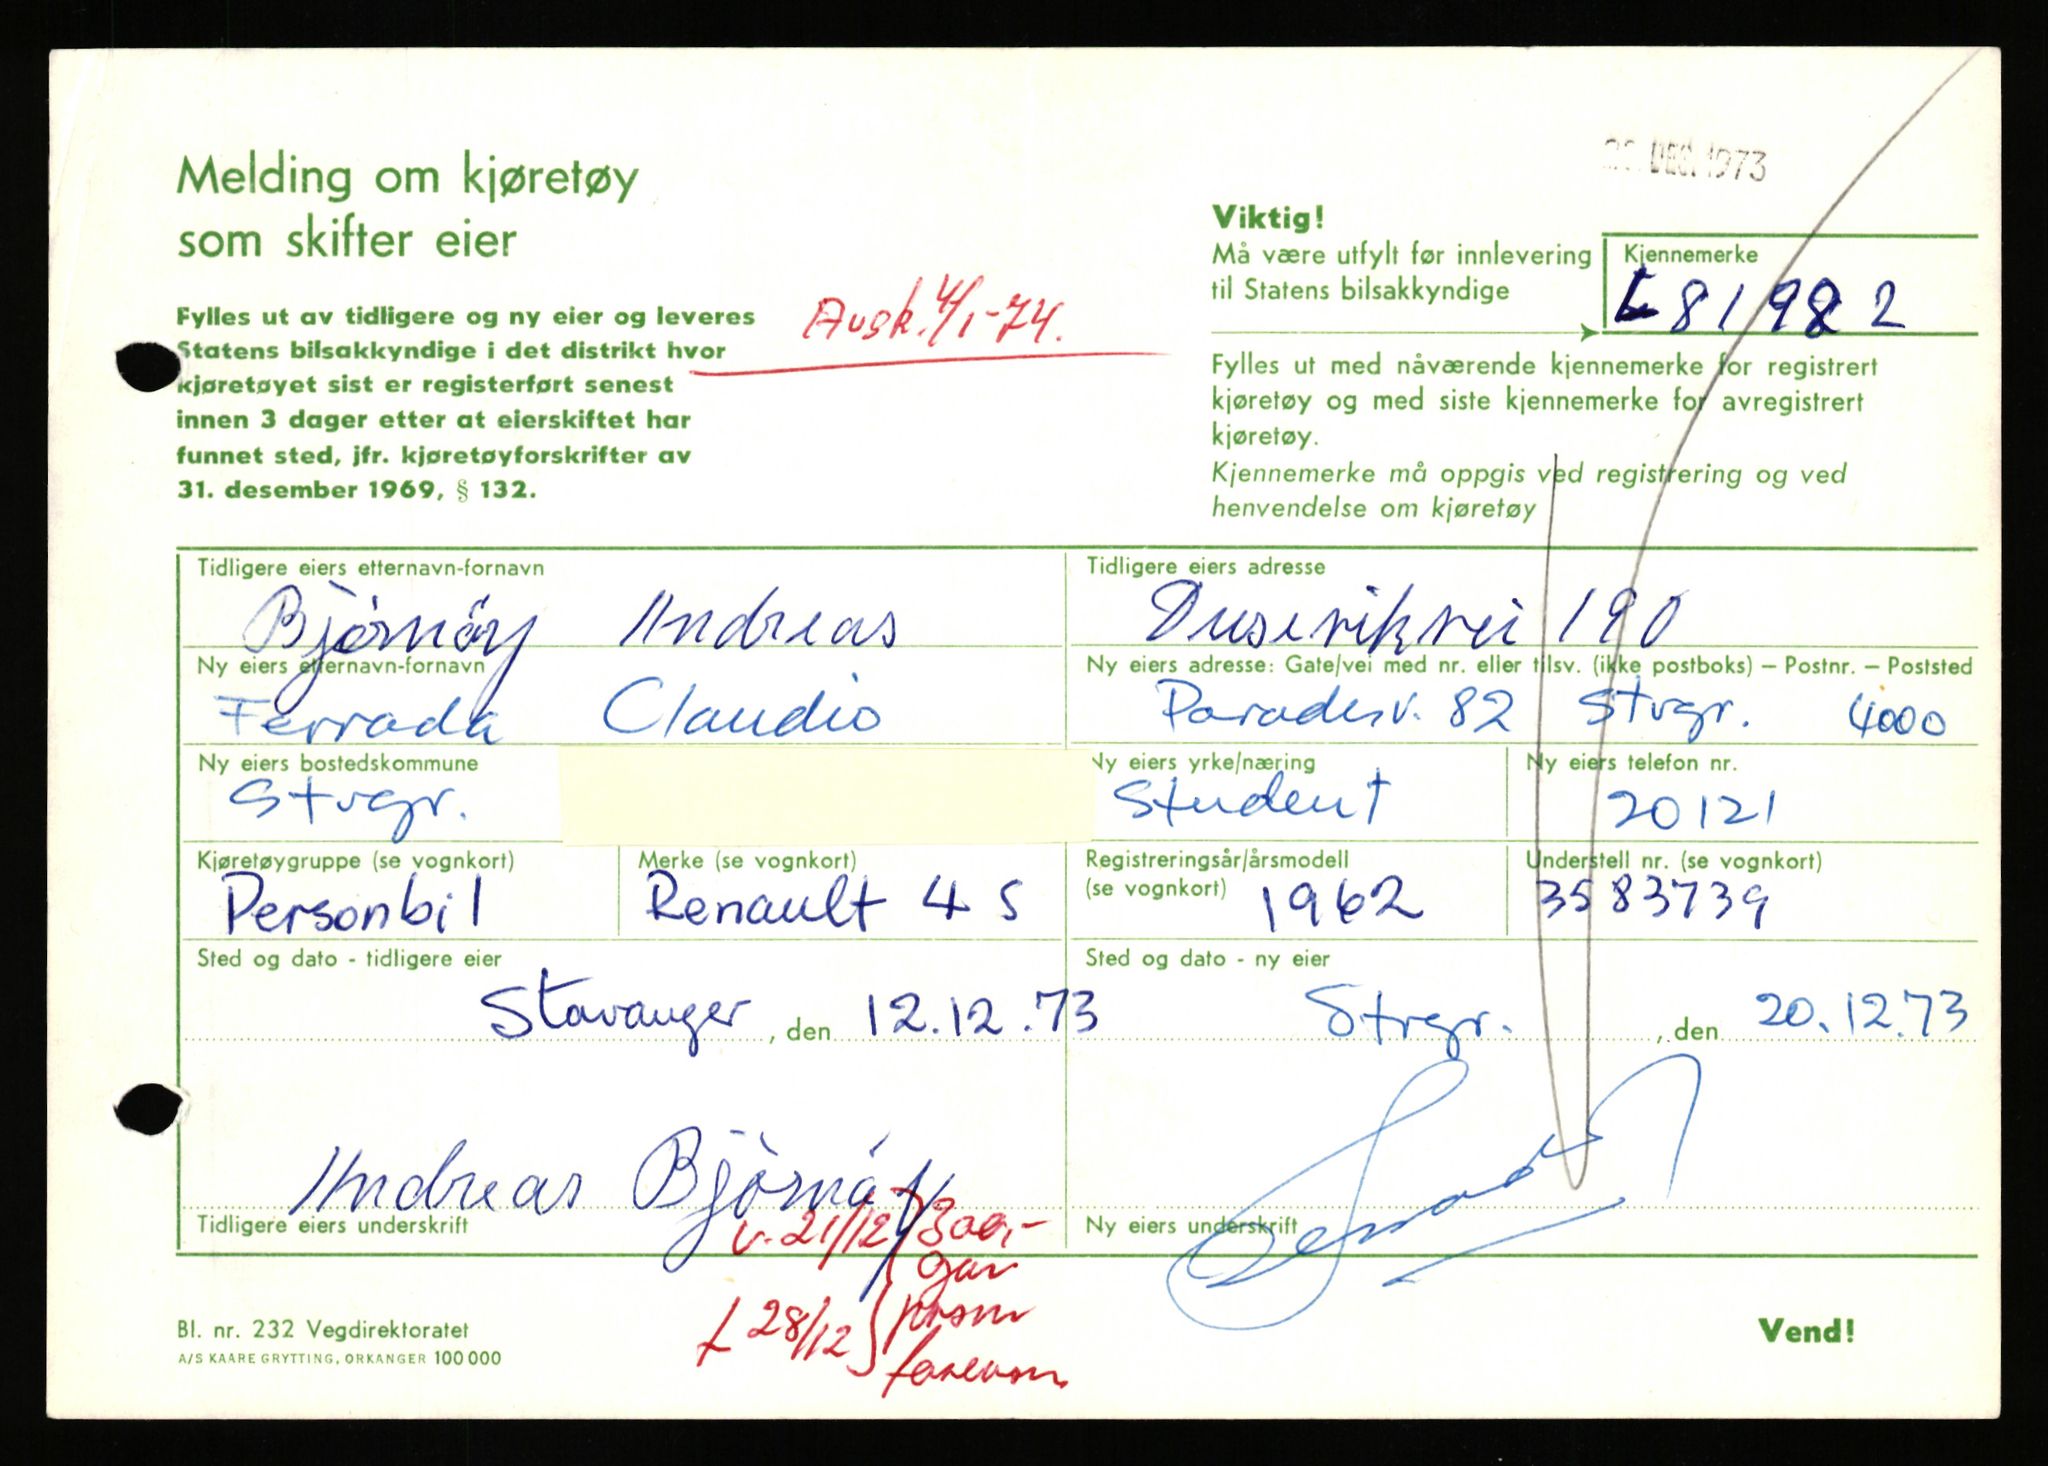 DEC. 1973
Melding om kjøretøy
som skifter eier
Fylles ut av tidligere og ny eier og leveres
Statens bilsakkyndige i det distrikt hvor
kjøretøyet sist er registerført senest
innen 3 dager etter at eierskiftet har
funnet sted, jfr. kjøretøyforskrifter av
31. desember 1969, § 132.
Avsk. 4/1-74.
Viktig!
Må være utfylt før innlevering
til Statens bilsakkyndige
Kjennemerke
L 81982
Fylles ut med nåværende kjennemerke for registrert
kjøretøy og med siste kjennemerke for avregistrert
kjøretøy.
Kjennemerke må oppgis ved registrering og ved
henvendelse om kjøretøy
Tidligere eiers etternavn-fornavn
Bjørnöy Andreas
Tidligere eiers adresse
Dusevikvei 190
Ny eiers etternavn-fornavn
Ferrada Claudio
Ny eiers adresse: Gate/vei med nr. eller tilsv. (ikke postboks) – Postnr. – Poststed
Paradisv. 82 Stvgr. 4000
Ny eiers bostedskommune
Stvgr.
Ny eiers yrke/næring
Student
Ny eiers telefon nr.
20121
Kjøretøygruppe (se vognkort)
Personbil
Merke (se vognkort)
Renault 4 S
Registreringsår/årsmodell
(se vognkort)
1962
Understell nr. (se vognkort)
3583739
Sted og dato - tidligere eier
Stavanger, den 12.12.73
Sted og dato - ny eier
Stvgr. , den 20.12.73
Andreas Bjørnöy
Tidligere eiers underskrift
Ny eiers underskrift
v. 21/12 300,-
28/12
Bl. nr. 232 Vegdirektoratet
A/S KAARE GRYTTING, ORKANGER 100 000
Vend!